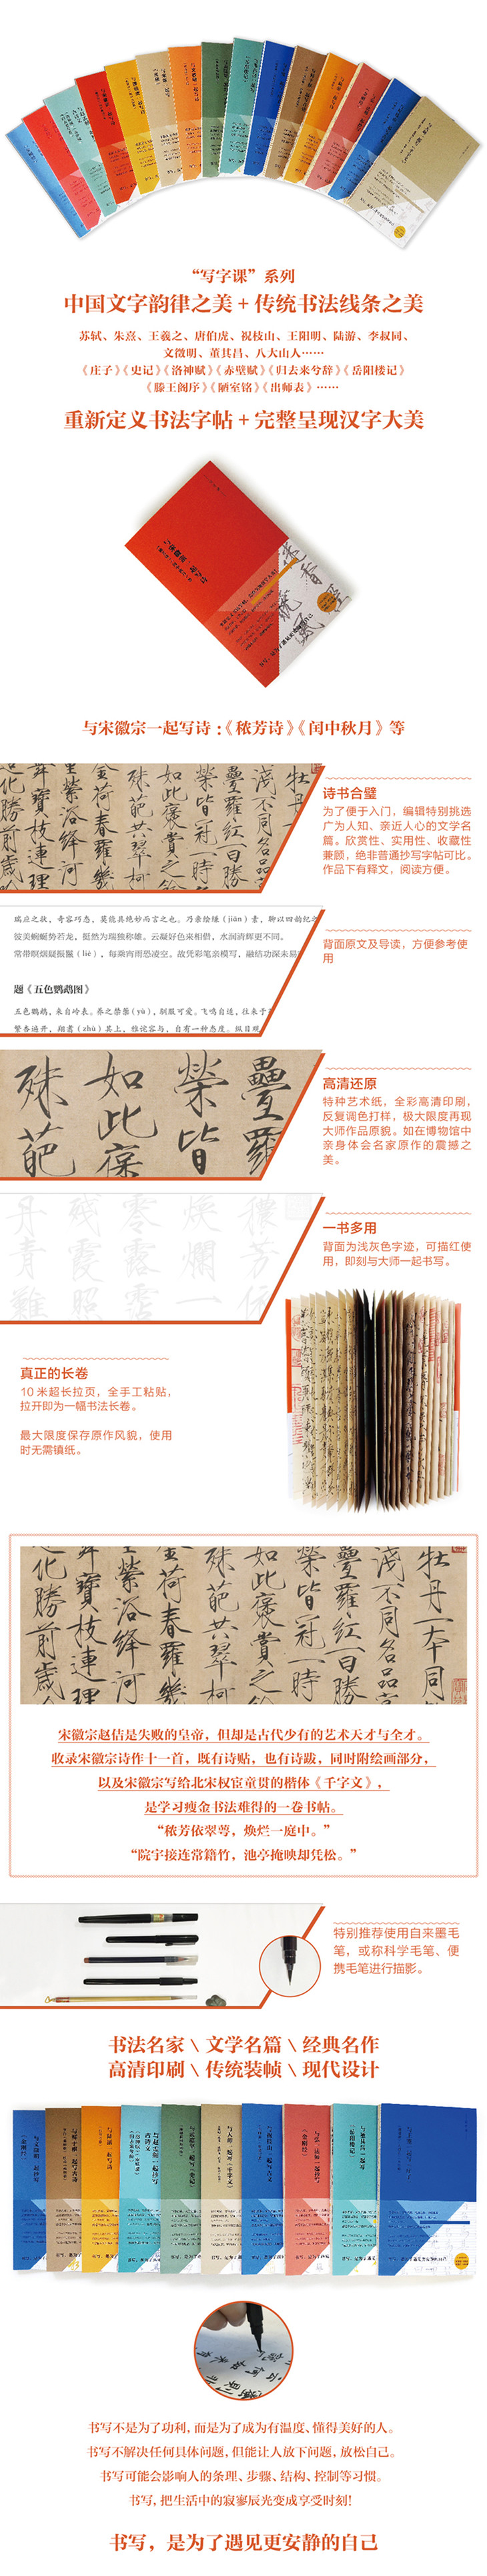 “写字课”系列
中国文字韵律之美 + 传统书法线条之美
苏轼、朱熹、王羲之、唐伯虎、祝枝山、王阳明、陆游、李叔同、
文徵明、董其昌、八大山人……
《庄子》《史记》《洛神赋》《赤壁赋》《归去来兮辞》《岳阳楼记》
《滕王阁序》《陋室铭》《出师表》……
重新定义书法字帖 + 完整呈现汉字大美
与宋徽宗一起写诗：《秾芳诗》《闰中秋月》等
牡丹一本同
浅不同名品
叠罗红一日胜
荣皆冠一时
如此褒赏之
殊葩共翠柯
金荷春罗几
里萦洛绛河
异宝枝连理
化胜前岁
诗书合璧
为了便于入门，编辑特别挑选
广为人知、亲近人心的文学名
篇。欣赏性、实用性、收藏性
兼顾，绝非普通抄写字帖可比。
作品下有释文，阅读方便。
瑞应之状，奇容巧态，莫能具绝妙而言之也。乃亲绘缣（jiān）素，聊以四韵纪之
彼美蜿蜒势若龙，挺然为瑞独称雄。云凝好色来相借，水润清辉更不同。
常带暝烟疑振鬣（liè），每乘宵雨恐凌空。故凭彩笔亲模写，融结功深未易
题《五色鹦鹉图》
五色鹦鹉，来自岭表。养之禁籞（yù），驯服可爱。飞鸣自适，往来于
繁杏遍开，翔翥（zhù）其上，雅诧容与，自有一种态度。纵目观
背面原文及导读，方便参考使
用
叠罗
荣皆
如此褒
殊葩
高清还原
特种艺术纸，全彩高清印刷，
反复调色打样，极大限度再现
大师作品原貌。如在博物馆中
亲身体会名家原作的震撼之
美。
秾芳依
焕烂一
零露沾
残霞照
丹青难
一书多用
背面为浅灰色字迹，可描红使
用，即刻与大师一起书写。
真正的长卷
10 米超长拉页，全手工粘贴，
拉开即为一幅书法长卷。
最大限度保存原作风貌，使用
时无需镇纸。
牡丹一本同
浅不同名品
叠罗红一日胜
荣皆冠一时
如此褒赏之
殊葩共翠柯
金荷春罗几
萦洛绛河
异宝枝连理
化胜前岁
宋徽宗赵佶是失败的皇帝，但却是古代少有的艺术天才与全才。
收录宋徽宗诗作十一首，既有诗贴，也有诗跋，同时附绘画部分，
以及宋徽宗写给北宋权宦童贯的楷体《千字文》，
是学习瘦金书法难得的一卷书帖。
“秾芳依翠萼，焕烂一庭中。”
“院宇接连常籍竹，池亭掩映却凭松。”
特别推荐使用自来墨毛
笔，或称科学毛笔、便
携毛笔进行描影。
书法名家 \ 文学名篇 \ 经典名作
高清印刷 \ 传统装帧 \ 现代设计
书写不是为了功利，而是为了成为有温度、懂得美好的人。
书写不解决任何具体问题，但能让人放下问题，放松自己。
书写可能会影响人的条理、步骤、结构、控制等习惯。
书写，把生活中的寂寥辰光变成享受时刻！
书写，是为了遇见更安静的自己